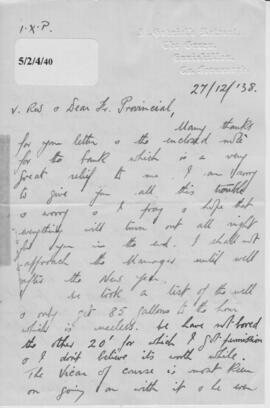 I.X.P.
5/2/4/40
27/12/'38.
V. Rev & Dear Fr. Provincial,
Many thanks
for your letter & the enclosed note
for the bank which is a very
great relief to me. I am sorry
to give you all this trouble
& worry & I pray & hope that
everything will turn out all right
for you in the end. I shall not
approach the Manager until well
after the New year.
We took a test of the well
& only get 85 gallons to the hour
which is useless. We have not bored
the other 20' for which I got permission
& I don't believe its worth while.
The Vicar of course is most keen
on going on with it & he even